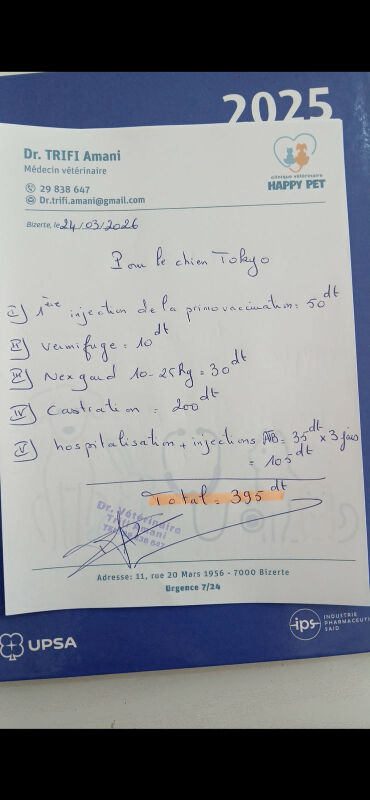 2025
Dr. TRIFI Amani
Médecin vétérinaire
29 838 647
Dr.trifi.amani@gmail.com
clinique vétérinaire
HAPPY PET
Bizerte, le 24/03/2026
Pour le chien Tokyo
I) 1ère injection de la primovaccination: 50dt
II) Vermifuge: 10dt
III) Nexgard 10-25Kg = 30dt
IV) Castration = 200dt
V) hospitalisation + injections ATB: 35dt x 3 jours
= 105dt
Total = 395dt
Dr. Vétérinaire
Trifi Amani
Adresse: 11, rue 20 Mars 1956 - 7000 Bizerte
Urgence 7/24
UPSA
ips
INDUSTRIE
PHARMACEUTI
SAID